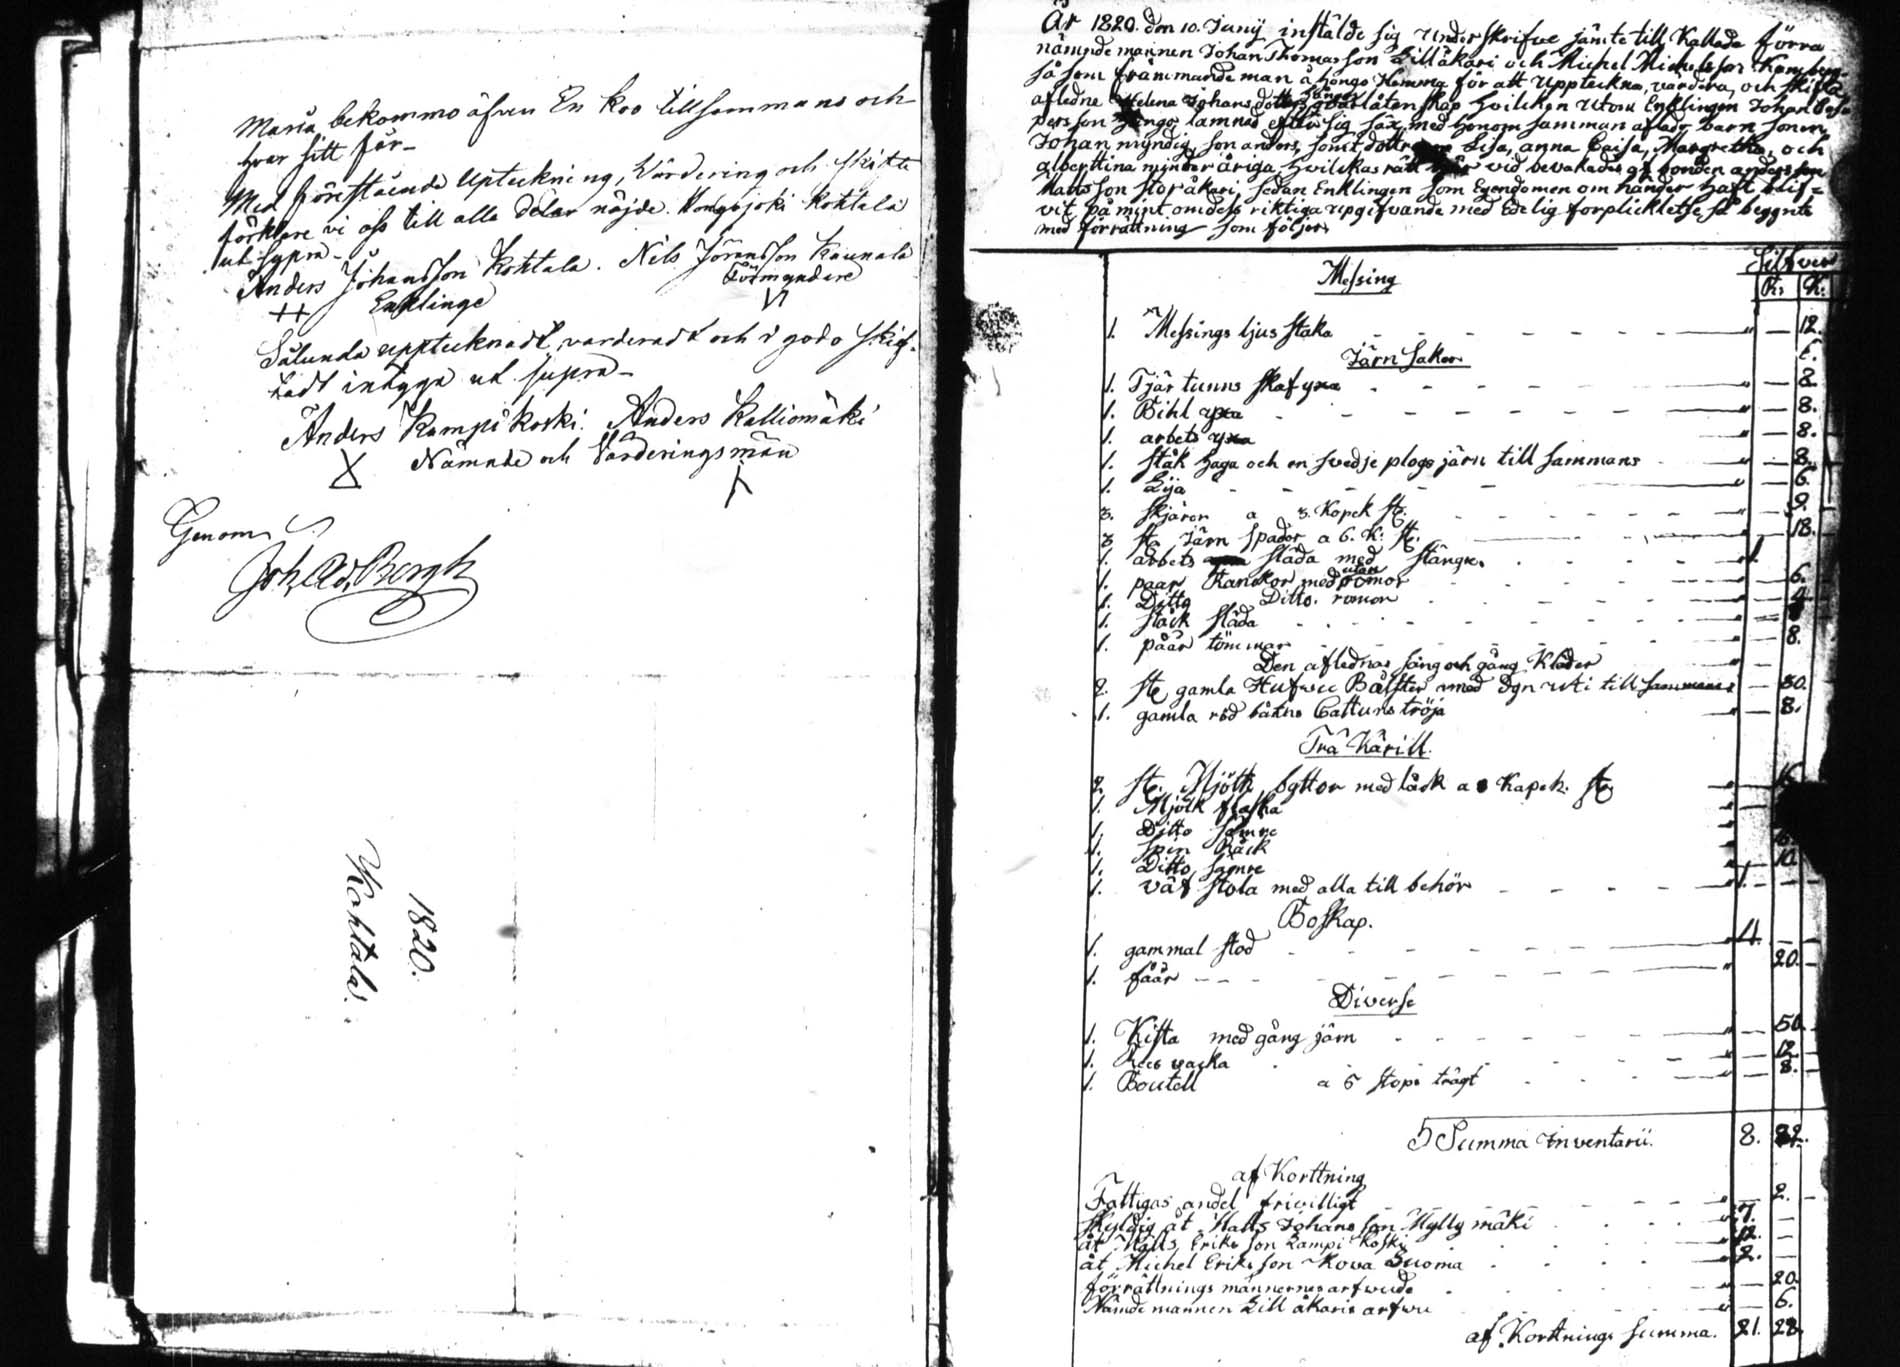 Maria, bekommo äfven En Koo tillsammans och
hvar sitt får_
Med förestående Upteckning, Värdering och skifte
förklare vi oss till alla delar nöjde. Kongojoki Kohtala
ut supra_
Anders Johansson Kohtala. Nils Jöransson Kaunala
Enklinge Förmyndare
Sålunda upptecknadt, varderadt och i godo skif-
tadt intyga ut supra_
Anders Kampi koski. Anders Kalliomäki
Nämnde och Värderingsmän
Genom
Joh. Ad. Bergh
1820.
Kohtala.
År 1820. den 10. Junij instälde sig Underskrifne jämte till Kallade förra
nämndemannen Johan Thomasson Lillåkari och Michel Michelsson
så som främmande man å hongo Hemma för att Uppteckna, vardera, och skifta
afledne Helena Johans dotter qvarlåtenskap hvilken Utom Enklingen Johan
persson hongo lämnad efter sig sax med honom samman aflade barn sonen
Johan myndig, son anders, samt döttrarne Lisa, anna Caisa, Margretha, och
alberttina minder åriga, hvilkas rätt vid bevakades af bonden anders
Mattsson storåkari, sedan Enklingen som Egendomen om händer haft blif-
vit påmint omdess riktiga upgifvande med Edelig förplicktelse, så begynte
med förrättning som följer,
Silfver
Messing R: K:
1. Messings ljus staka " — 12.
Järn saker.
1. Tjär tunns skaf yxa " — 8.
1. Bihl yxa " — 8.
1. arbets yxa " — 8.
1. Ståk haga och en svedje plogs järn till sammans " — 8.
1. Lija " — 6.
3. skjäror a 3. Kopek st. " — 9.
3 st. Järn spador a 6. K: st. " — 18.
1. arbets släda med stänger. " 1
1. paar Kanskor med utan romor " — 6.
1. Ditto Ditto. romor " — 4
1. ståck släda "
1. påår tömmar " — 8.
Den aflednas säng och gång Kläder
2. st. gamla Hufvu Bålster med Dyn uti till sammans " — 80.
1. gamla röd båkno Cattuns tröja " — 8.
Trä Kärill.
2 st. Mjölk byttor med låck a Kapek. st.
1. Mjölk flaska
1. Ditto sämre
1. Spin Råck
1. Ditto sämre 10
1. väf stola med alla till behör " 1. —
Boskap.
1. gammal stod " 4. —
1. fåår " — 20.
Diverse
1. Kista med gång järn " — 50.
1. Rees vacka " — 12.
1. Boutell a 5 stops trägt " — 8.
Summa Inventarii. 8.
af Korttning
Fattigas andel frivilligt " — 2.
skyldig åt Matts Johans son Mylly mäki " 7. —
åt Matts Eriks son Kampi koski " 12. —
åt Michel Eriks son Kova Luoma " 2. —
förrättnings männernas arfwude " — 20.
Nämdemannen Lill åkaris arfwu " — 6.
af Korttnings summa. 21. 28.